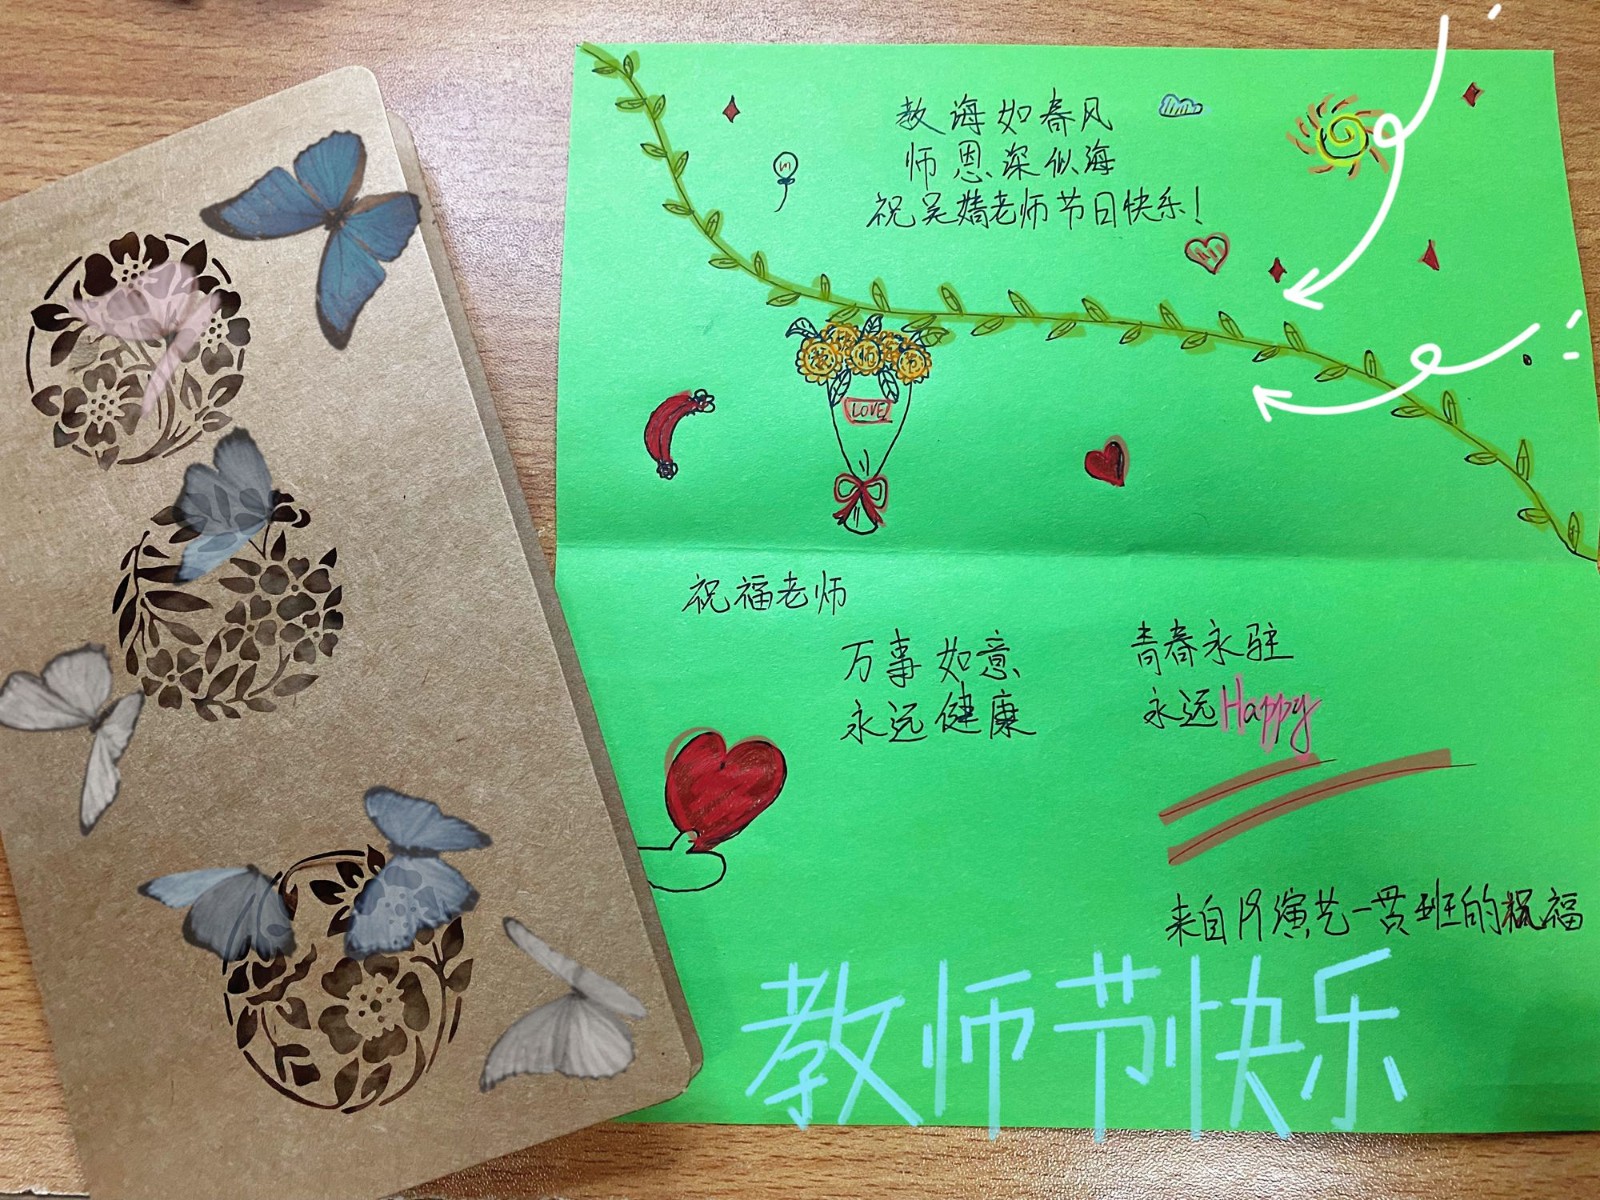 教海如春风
师恩深似海
祝吴婧老师节日快乐！
LOVE
祝福老师
万事如意
永远健康
青春永驻
永远Happy
来自19演艺一贯班的祝福
教师节快乐